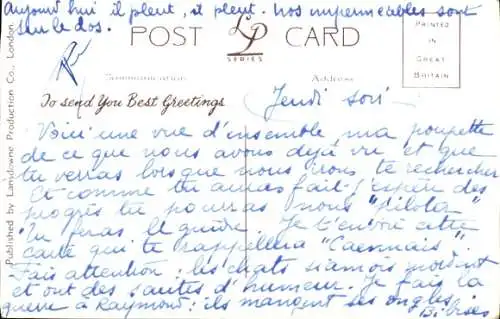 Aujourd'hui il pleut, il pleut. Nos imperméables sont
sur le dos.
POST CARD
LP
SERIES
PRINTED
IN
GREAT
BRITAIN
Communication
Address
To send You Best Greetings
Published by Lansdowne Production Co., London
Jeudi soir
Voici une vue d'ensemble, ma poupette
de ce que nous avons déjà vu et que
tu verras lorsque nous irons te rechercher
Et comme tu auras fait j'espère des
progrès tu pourras nous "pilota"
Tu feras le guide. Je t'envoie cette
carte qui te rappellera "Caennais".
Fais attention: les chats siamois mordent
et ont des sautes d'humeur. Je fais la
guerre à Raymond: ils mangent ses ongles
Bi